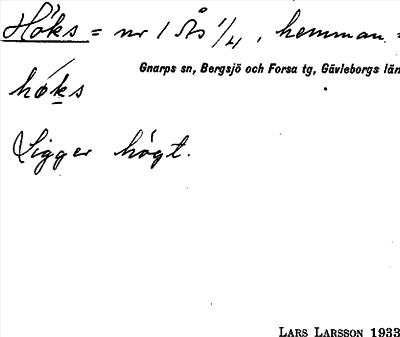 Höks = nr 1 Ås 1/4, hemman =
Gnarps sn, Bergsjö och Forsa tg, Gävleborgs län
höks
Ligger högt.
LARS LARSSON 1933